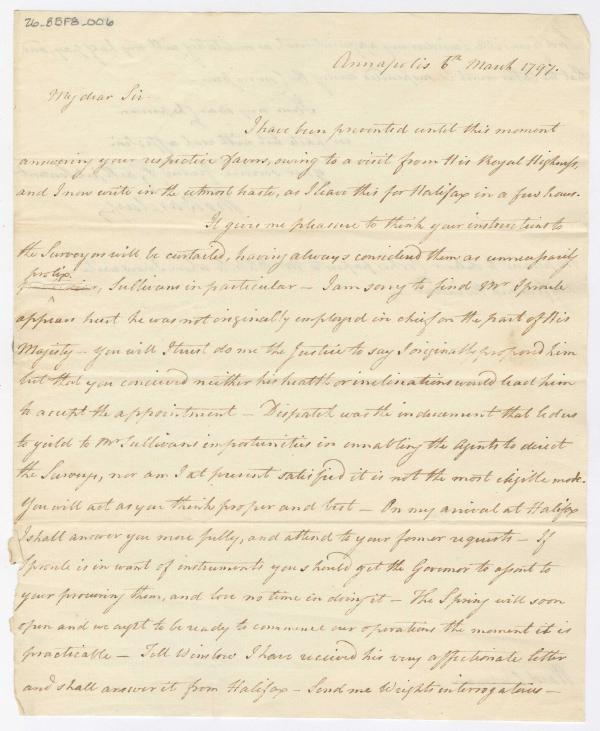 26_85F8_006
Annapolis 6th March 1797.
My dear Sir
I have been prevented until this moment
answering your respective favors, owing to a visit from His Royal Highness,
and I now write in the utmost haste, as I leave this for Halifax in a few hours.
It gives me pleasure to think your instructions to
the Surveyors will be curtailed, having always considered them as unnecessarily
prolix, Sullivans in particular – I am sorry to find Mr Sproule
appears hurt he was not originally employed in chief on the part of His
Majesty – you will I trust do me the Justice to say I originally proposed him
but that you conceived neither his health or inclinations would lead him
to accept the appointment – Dispatch was the inducement that led us
to yield to Mr Sullivans importunities in ennabling the Agents to direct
the Surveys, nor am I at present satisfied it is not the most eligible mode.
You will act as you think proper and best – On my arrival at Halifax
I shall answer you more fully, and attend to your former requests – If
Sproule is in want of instruments you should get the Governor to assent to
your procuring them, and lose no time in doing it – The Spring will soon
open and we ought to be ready to commence our operations the moment it is
practicable – Tell Winslow I have received his very affectionate letter
and shall answer it from Halifax – Send me Wrights interrogatories –